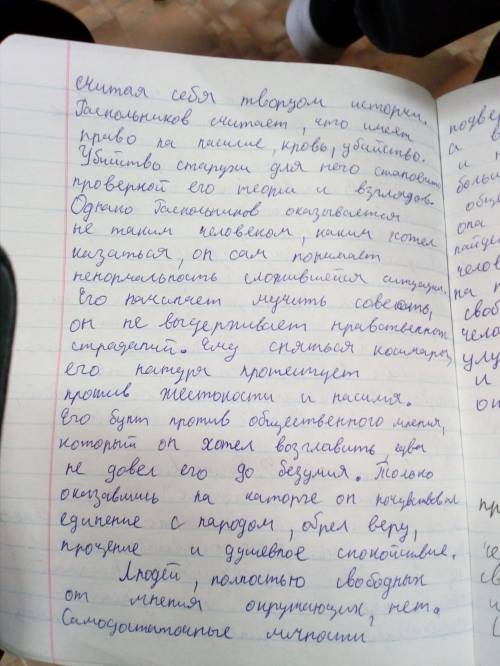 считая себя творцом истории.
Раскольников считает, что имеет
право на насилие, кровь, убийство.
Убийство старухи для него становит
проверкой его теори и взглядов.
Однако Раскольников оказывается
не таким человеком, каким хотел
казаться, он сам понимает
ненормальность сложившейся ситуации.
Его начинает мучить совесть,
он не выдерживает нравственных
страданий. Ему сняться космары,
его натура протестует
против жестокости и насилия.
Его бунт против общественного мнения,
который он хотел возглавить, едва
не довел его до безумия. Только
оказавшись на каторге он почувствовал
единение с народом, обрел веру,
прощение и душевное спокойствие.
Людей, полностью свободных
от мнения окружающих, нет.
Самодостаточные личности
подвер
а в
и н
больш
общ
она
найде
челов
на п
своб
чело
улу
и
он
пр